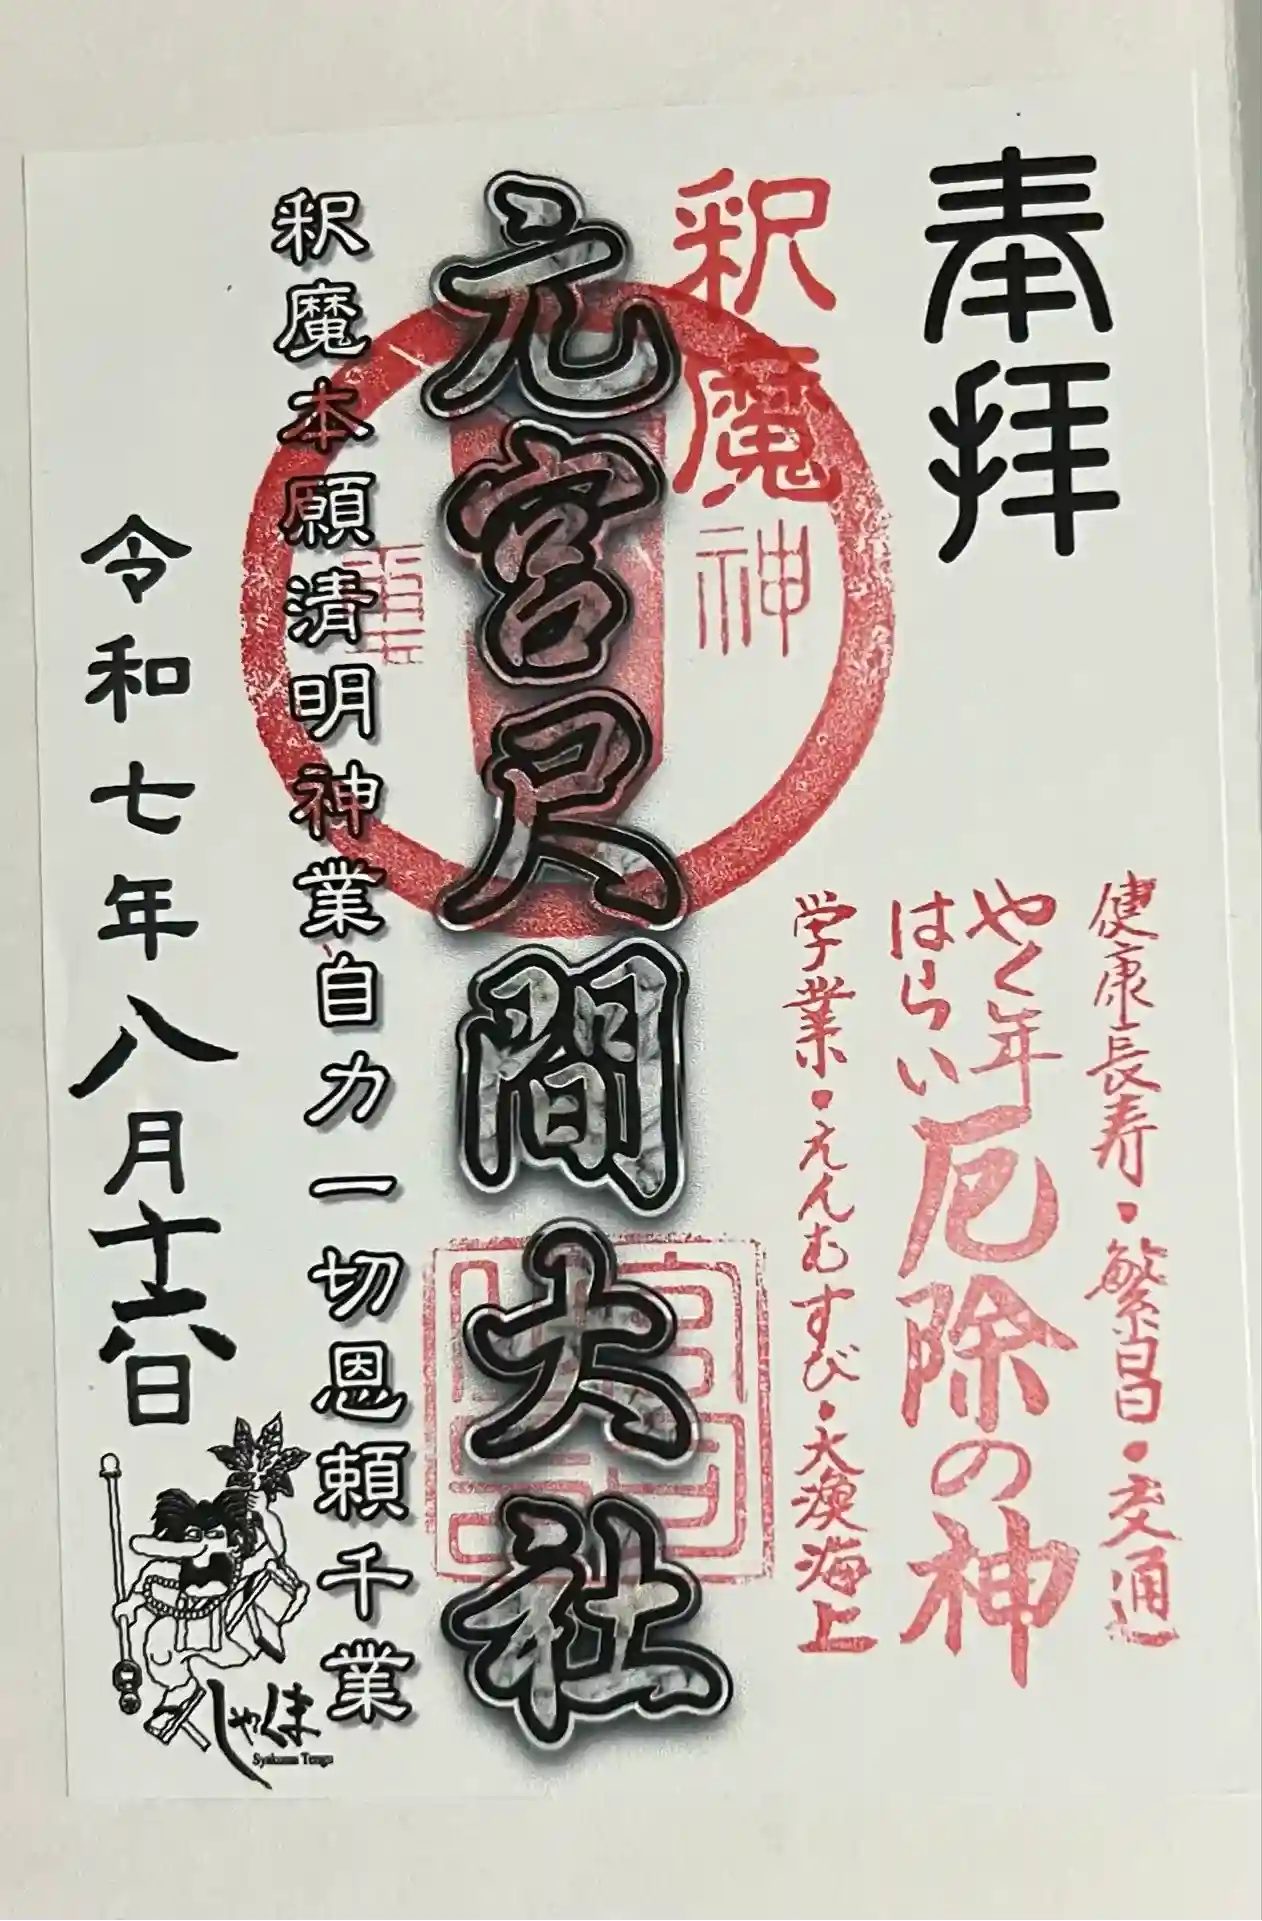 奉拝
健康長寿・繁昌・交通
やく年
はらい
厄除の神
学業・えんむすび・大漁海上
釈魔神
元宮尺間大社
釈魔本願清明神業自力一切恩頼千業
令和七年八月十六日
しゃくま
Syakuma Tengu